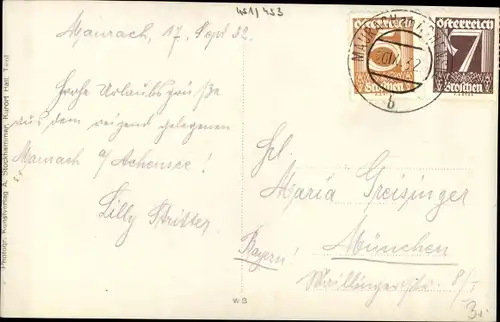 451/453
Maurach, 17. Sept 32.
Frohe Urlaubsgrüße
aus dem reizend gelegenen
Maurach a/Achensee!
Lilly Stritter
Österreich
Groschen
Österreich
7
Groschen
b
Frl.
Maria Greisinger
München
Bayern!
W B
Photogr. Kunstverlag A. Stockhammer, Kurort Hall, Tirol